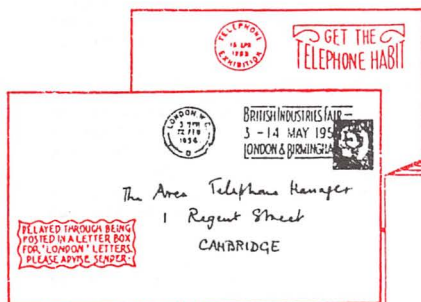 TELEPHONE
EXHIBITION
GET THE
TELEPHONE HABIT
LONDON W.C.
1956
BRITISH INDUSTRIES FAIR -
3 - 14 MAY 195
LONDON & BIRMINGHA
The Area Telephone Manager
1 Regent Street
CAMBRIDGE
DELAYED THROUGH BEING
POSTED IN A LETTER BOX
FOR 'LONDON' LETTERS.
PLEASE ADVISE SENDER.